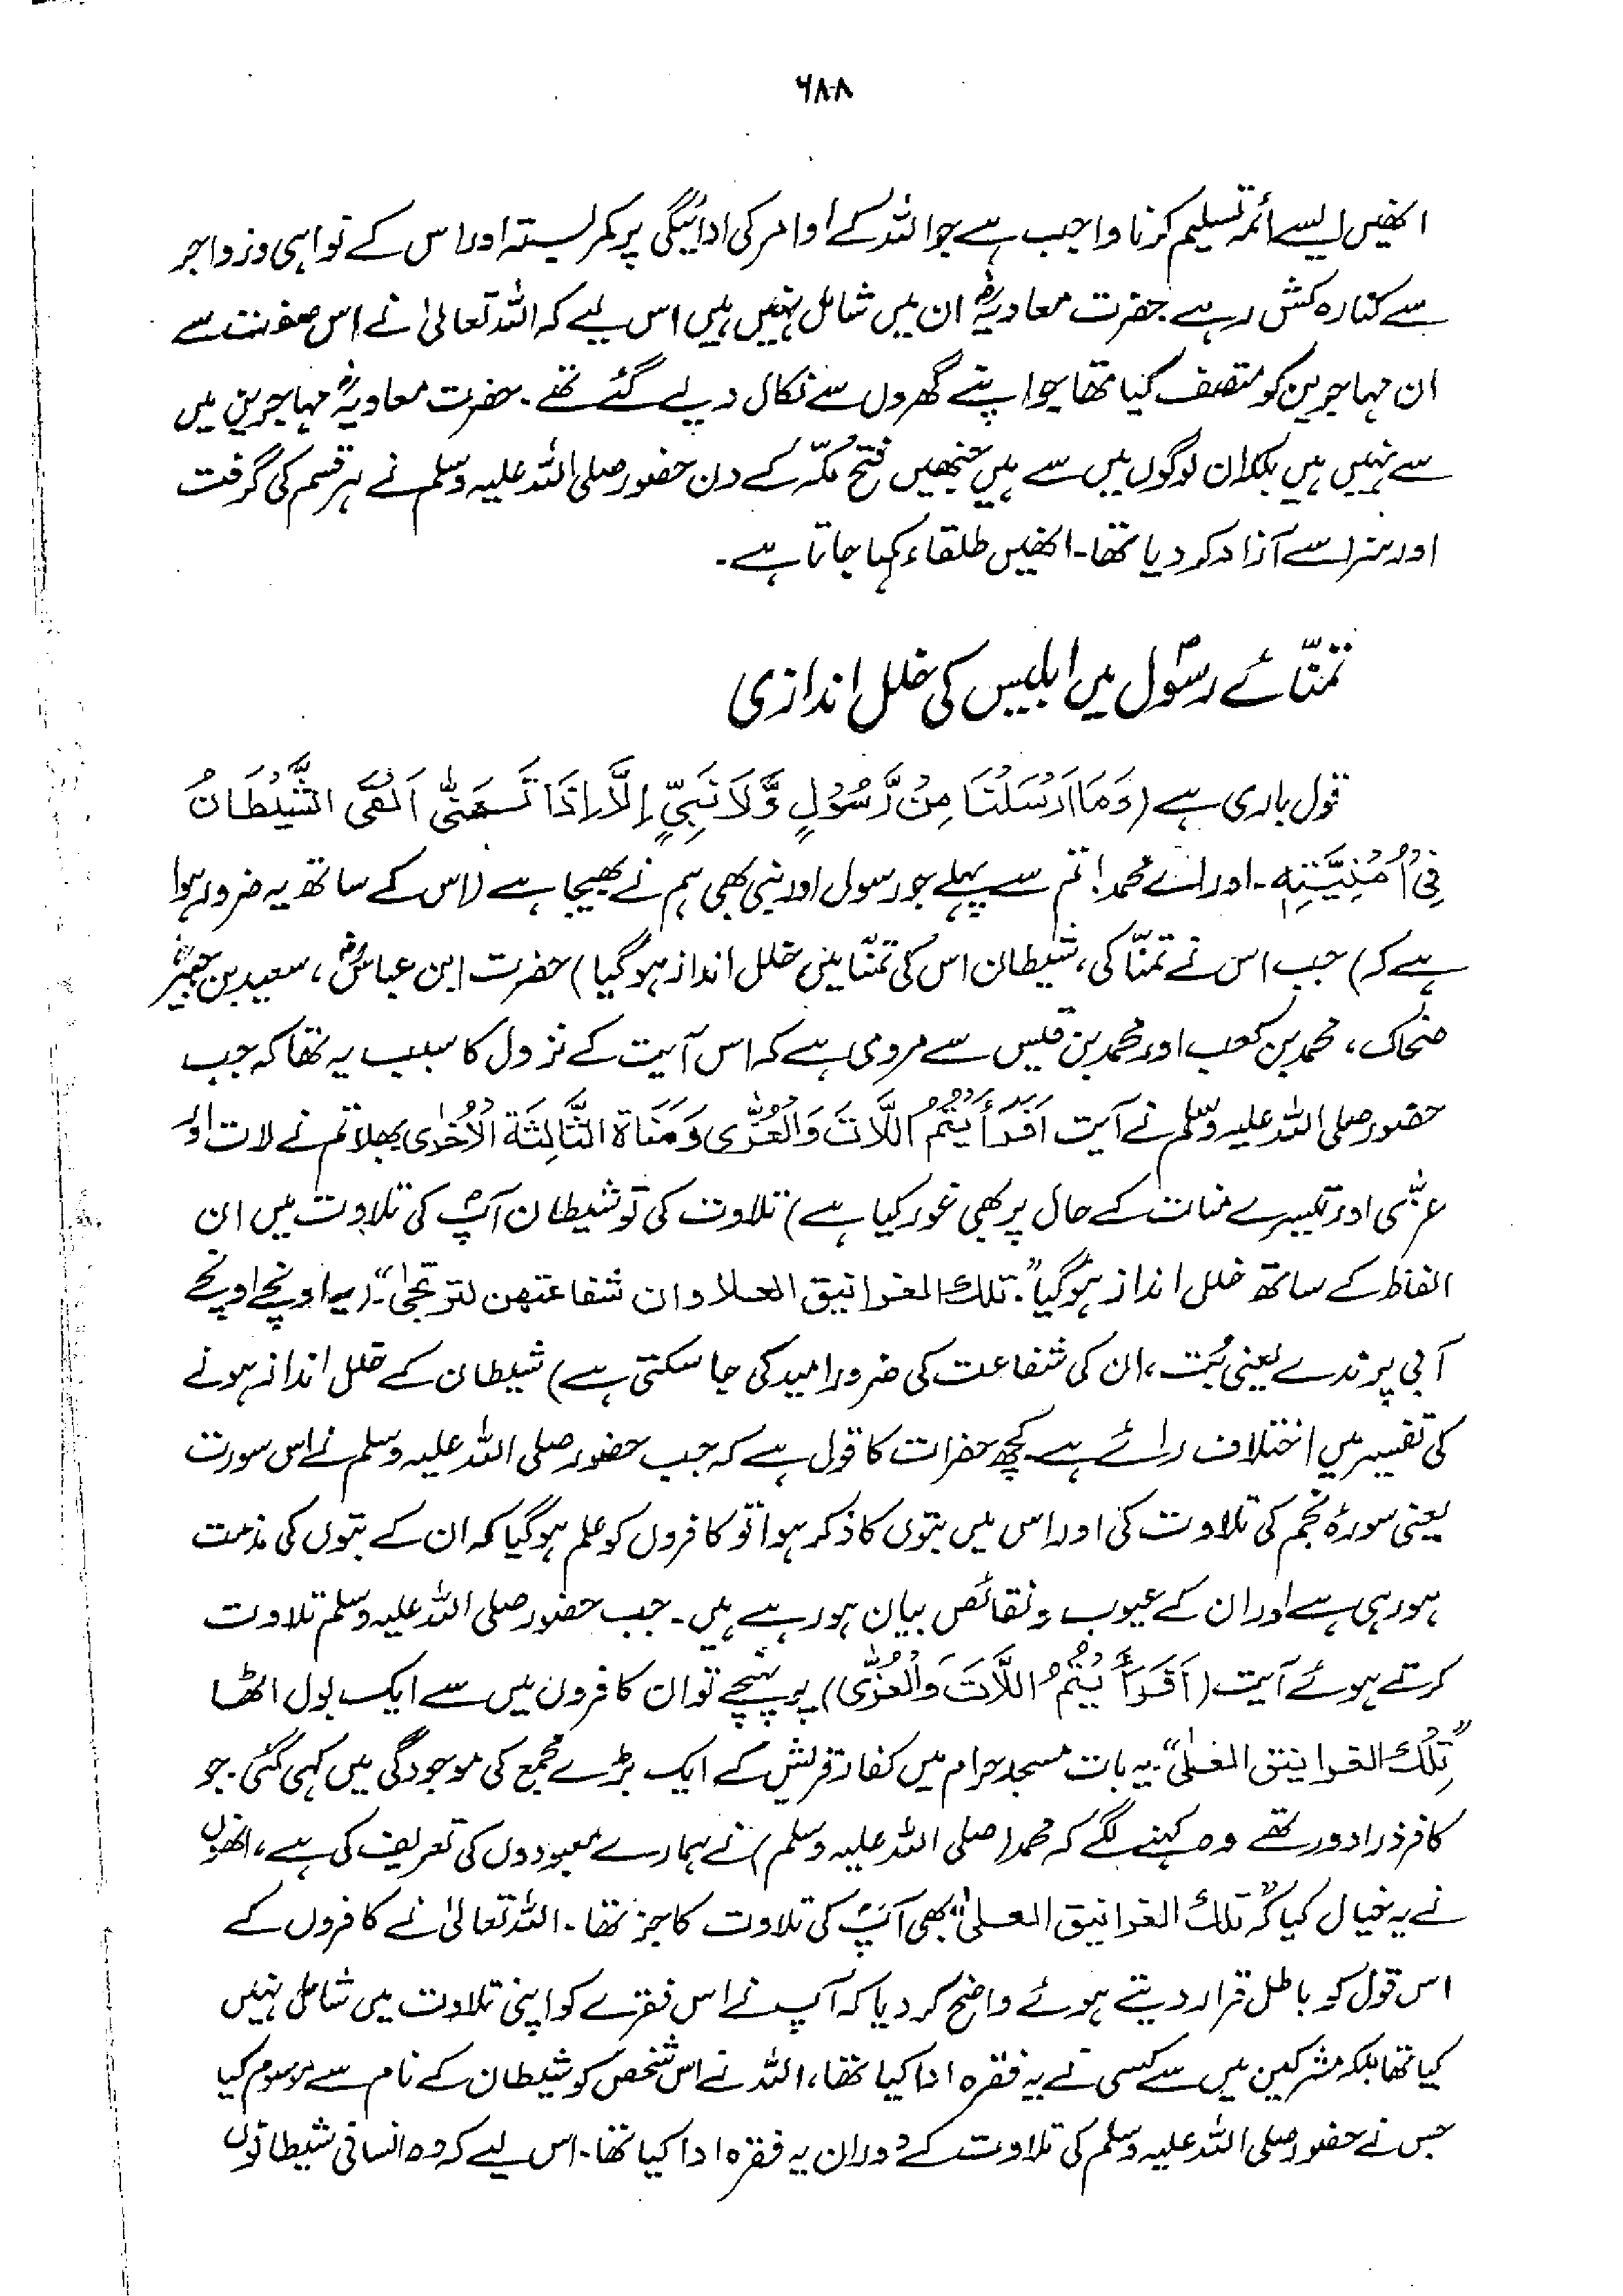 ۶۸۸
انھیں ایسے ائمہ تسلیم کرنا واجب ہے جو اللہ کے اوامر کی ادائیگی پر کمر بستہ اور اس کے نواہی و زواجر
سے کنارہ کش رہے۔ حضرت معاویہؓ ان میں شامل نہیں ہیں اس لیے کہ اللہ تعالیٰ نے اس صفت سے
ان مہاجرین کو متصف کیا تھا جو اپنے گھروں سے نکال دیے گئے تھے۔ حضرت معاویہؓ مہاجرین میں
سے نہیں ہیں بلکہ ان لوگوں میں سے ہیں جنھیں فتح مکّہ کے دن حضور صلی اللہ علیہ وسلم نے ہر قسم کی گرفت
اور سزا سے آزاد کر دیا تھا۔ انھیں طلقاء کہا جاتا ہے۔
تمنّائے رسولؐ میں ابلیس کی خلل اندازی
قول باری ہے (وَمَا اَرْسَلْنَا مِنْ رَّسُوْلٍ وَّلَا نَبِيٍّ اِلَّا اِذَا تَمَنّٰى اَلْقَى الشَّيْطَانُ
فِيْ اُمْنِيَّتِهٖ۔ اور اے محمد! تم سے پہلے جو رسول اور نبی بھی ہم نے بھیجا ہے (اس کے ساتھ یہ ضرور ہوا
ہے کہ) جب اس نے تمنّا کی، شیطان اس کی تمنّا میں خلل انداز ہو گیا) حضرت ابن عباسؓ، سعید بن جبیرؒ
ضحاک، محمد بن کعب اور محمد بن قیس سے مروی ہے کہ اس آیت کے نزول کا سبب یہ تھا کہ جب
حضور صلی اللہ علیہ وسلّم نے آیت اَفَرَأَيْتُمُ اللَّاتَ وَالْعُزّٰى وَمَنَاةَ الثَّالِثَةَ الْاُخْرٰى بھلا تم نے لات اور
عزّٰی اور تیسرے منات کے حال پر بھی غور کیا ہے) تلاوت کی تو شیطان آپؐ کی تلاوت میں ان
الفاظ کے ساتھ خلل انداز ہو گیا "تلك الغرانيق العلا وان شفاعتهن لترتجیٰ"۔ (یہ اونچے اونچے
آبی پرندے یعنی بُت، ان کی شفاعت کی ضرور امید کی جا سکتی ہے) شیطان کے خلل انداز ہونے
کی تفسیر میں اختلاف رائے ہے۔ کچھ حضرات کا قول ہے کہ جب حضور صلی اللہ علیہ وسلم نے اس سورت
یعنی سورۂ نجم کی تلاوت کی اور اس میں بتوں کا ذکر ہوا تو کافروں کو علم ہو گیا کہ ان کے بتوں کی مذمت
ہو رہی ہے اور ان کے عیوب و نقائص بیان ہو رہے ہیں۔ جب حضور صلی اللہ علیہ وسلم تلاوت
کرتے ہوئے آیت (اَفَرَأَيْتُمُ اللَّاتَ وَالْعُزّٰى) پر پہنچے تو ان کافروں میں سے ایک بول اٹھا
"تِلْكَ الغرانيق العلىٰ"۔ یہ بات مسجد حرام میں کفار قریش کے ایک بڑے مجمع کی موجودگی میں کہی گئی۔ جو
کافر ذرا دور تھے وہ کہنے لگے کہ محمد (صلی اللہ علیہ وسلم) نے ہمارے معبودوں کی تعریف کی ہے، انھوں
نے یہ خیال کیا کہ "تلك الغرانيق العلىٰ" بھی آپؐ کی تلاوت کا جز تھا۔ اللہ تعالیٰ نے کافروں کے
اس قول کو باطل قرار دیتے ہوئے واضح کر دیا کہ آپ نے اس فقرے کو اپنی تلاوت میں شامل نہیں
کیا تھا بلکہ مشرکین میں سے کسی نے یہ فقرہ ادا کیا تھا، اللہ نے اس شخص کو شیطان کے نام سے موسوم کیا
جس نے حضور صلی اللہ علیہ وسلم کی تلاوت کے دوران یہ فقرہ ادا کیا تھا۔ اس لیے کہ وہ انسانی شیطانوں